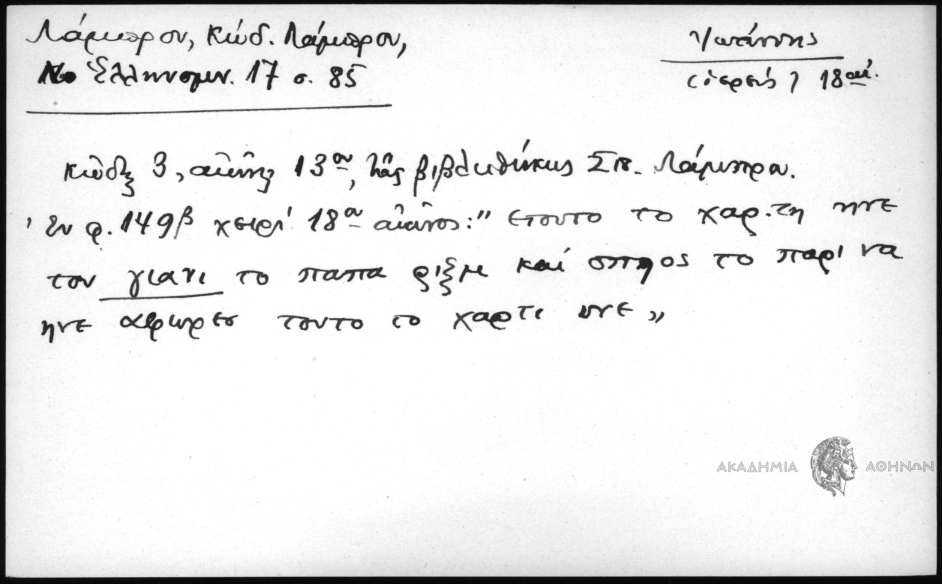 Λάμπρου, Κώδ. Λάμπρου,
Νέο Ἑλληνομν. 17 σ. 85
Ἰωάννης
ἱερεύς 18 αἰ.
Κῶδιξ 3, αἰῶνος 13ου, τῆς βιβλιοθήκης Σπ. Λάμπρου.
Ἐν φ. 149β χειρὶ 18ου αἰῶνος: " ετουτο το χαρ.τη ηνε
του γιανι το παπα ριξμε και οπηος το παρι να
ηνε αφωρεσ τουτο το χαρτι υνε "
ΑΚΑΔΗΜΙΑ ΑΘΗΝΩΝ